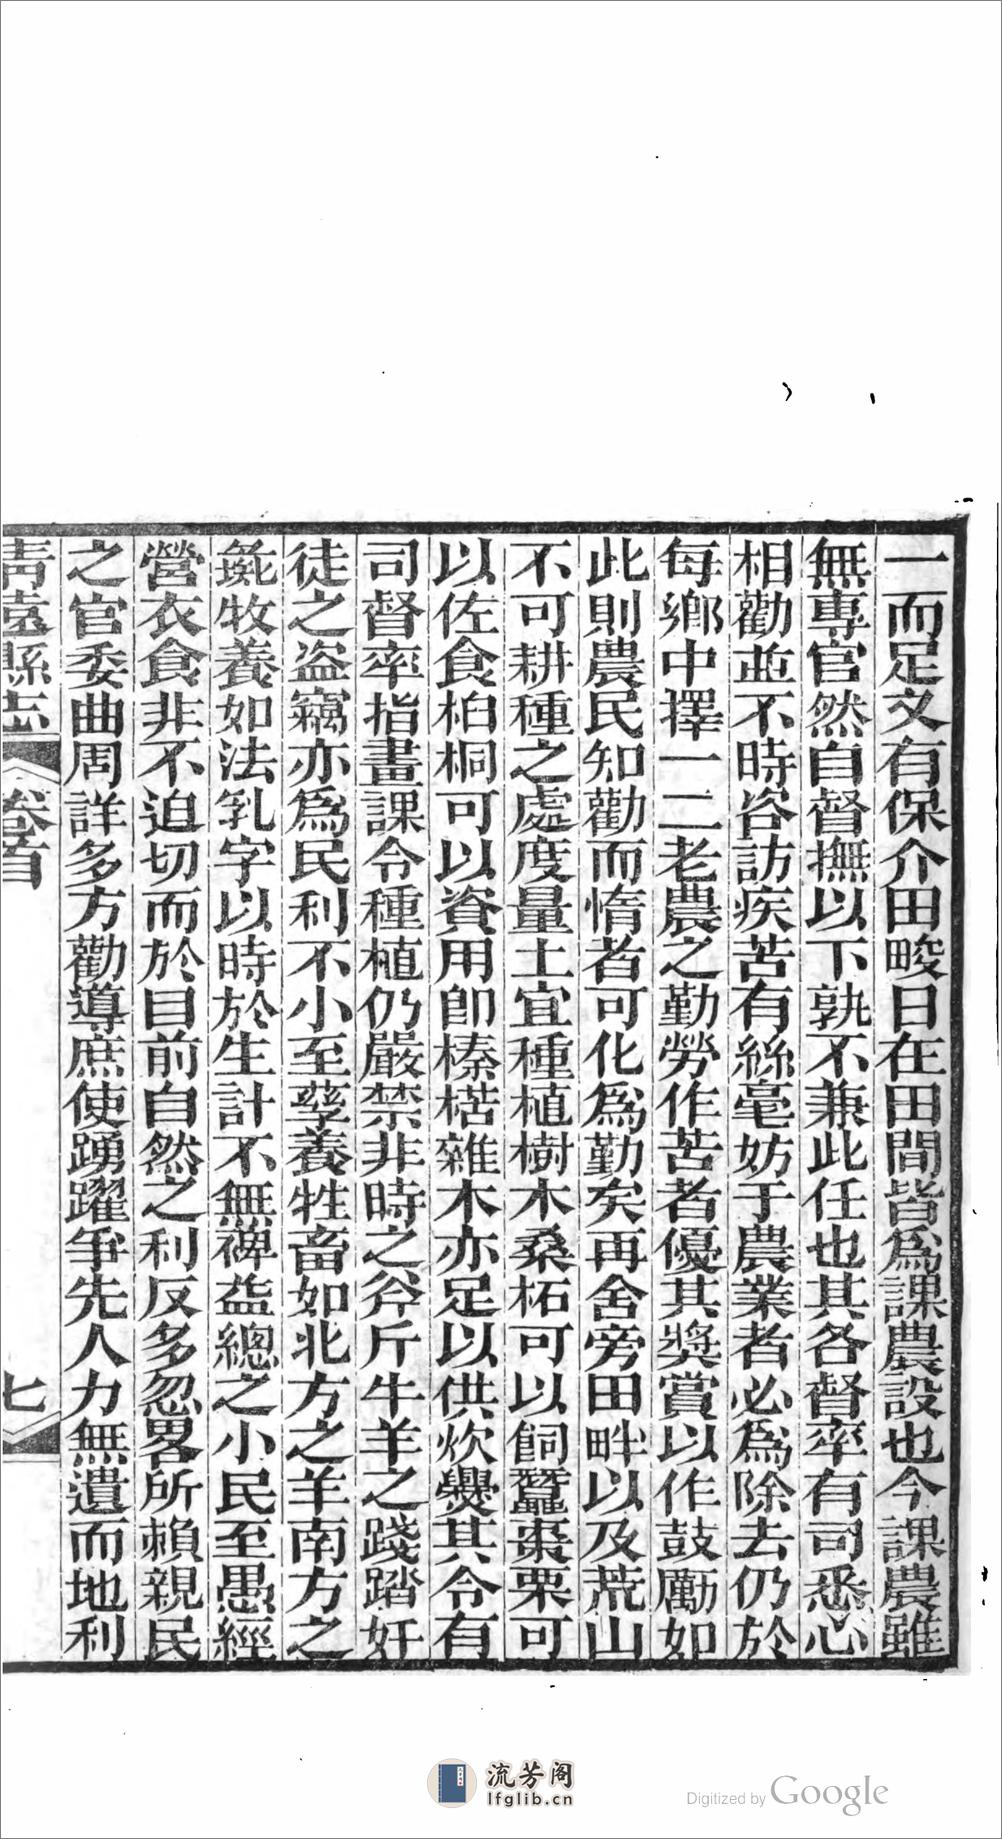 一而足又有保介田畯日在田間皆為課農設也今課農雖
無專官然自督撫以下孰不兼此任也其各督率有司悉心
相勸並不時咨訪疾苦有絲毫妨于農業者必為除去仍於
每鄉中擇一二老農之勤勞作苦者優其奬賞以作鼓勵如
此則農民知勸而惰者可化為勤矣再舍旁田畔以及荒山
不可耕種之處度量土宜種植樹木桑柘可以飼蠶棗栗可
以佐食桕桐可以資用卽榛楛雜木亦足以供炊爨其令有
司督率指畫課令種植仍嚴禁非時之斧斤牛羊之踐踏奸
徒之盜竊亦為民利不小至孳養牲畜如北方之羊南方之
彘牧養如法乳字以時於生計不無裨益總之小民至愚經
營衣食非不迫切而於目前自然之利反多忽畧所賴親民
之官委曲周詳多方勸導庶使踴躍爭先人力無遺而地利
青遠縣志 卷首 七
流芳阁
lfglib.cn
Digitized by Google